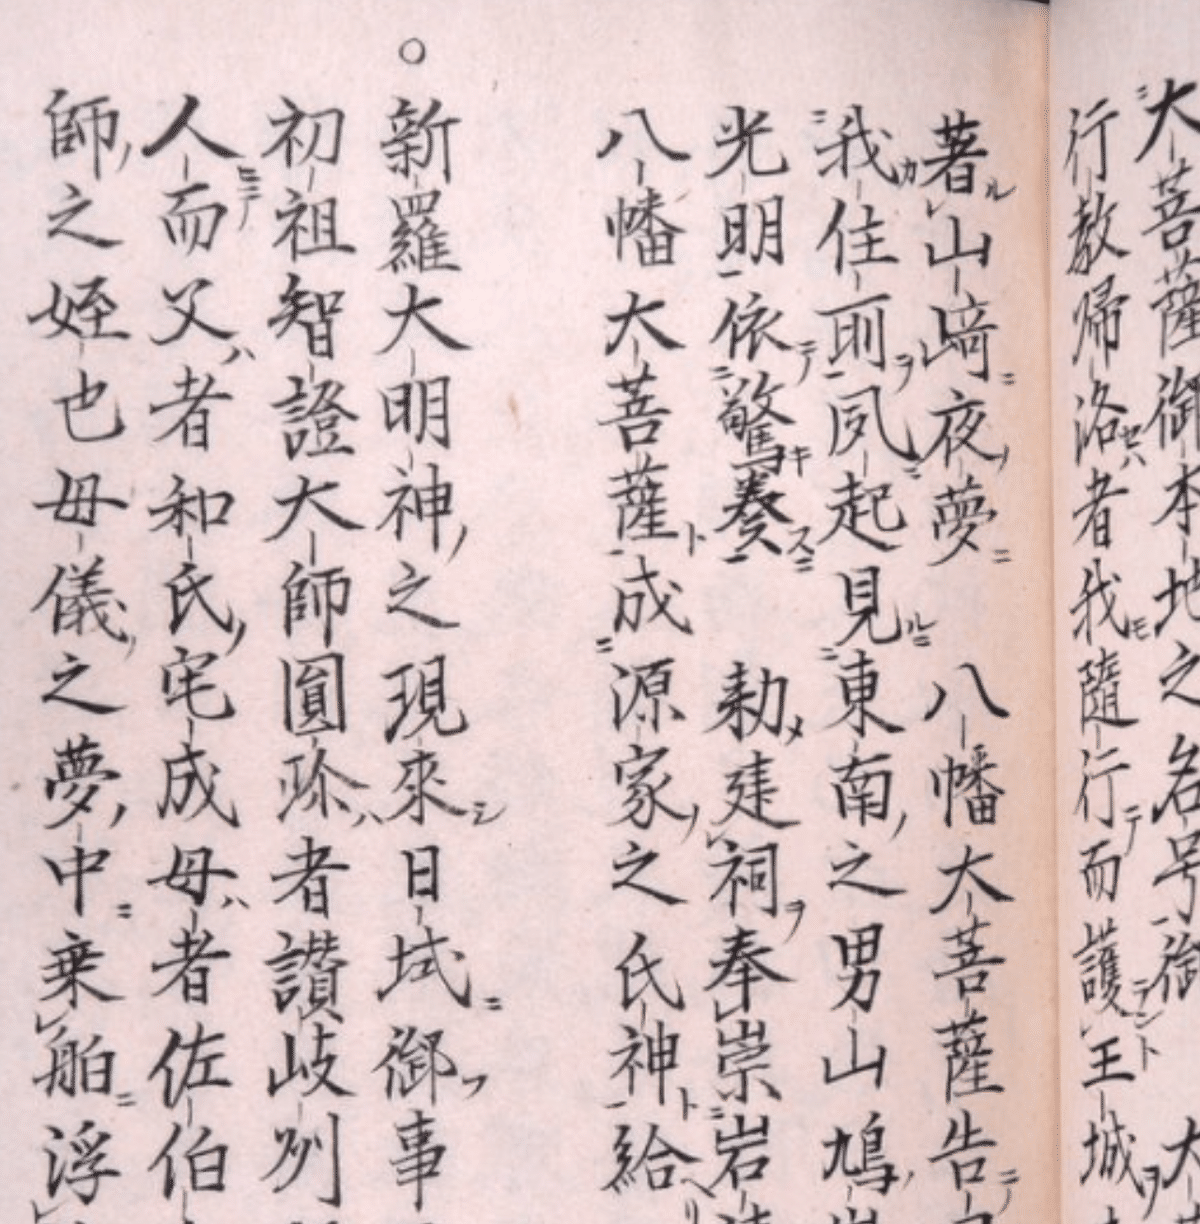 大菩薩御本地之名号御
行教帰洛者我モ随行テ而護ラント王城ヲ
著ル山﨑ニ夜ノ夢ニ 八幡大菩薩告テ
我カ住所ヲ夙ニ起見ル東南ノ之男山鳩ノ
光明一依テ驚キ奏ス 勅メ建祠ヲ奉崇岩
八幡大菩薩ト成源家ノ之氏神ト給ヘリ
○新羅大明神ノ之現來シ日域ニ御フ事
初祖智證大師圓珎ハ者讃岐州
人ニテ而父ハ者和氏ノ宅成母ハ者佐伯
師ノ之姪也母儀ノ之夢ノ中ニ乗舶ニ浮